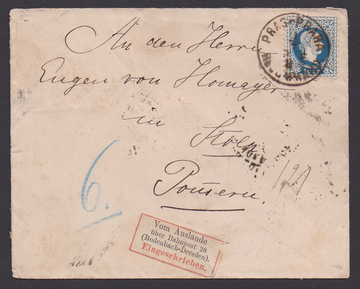 An den Herrn
PRAG PRAHA
Eugen von Homayer
in
Stolp
Pommern.
6.
Vom Auslande
über Bahnpost 20
(Bodenbach-Dresden).
Eingeschrieben.